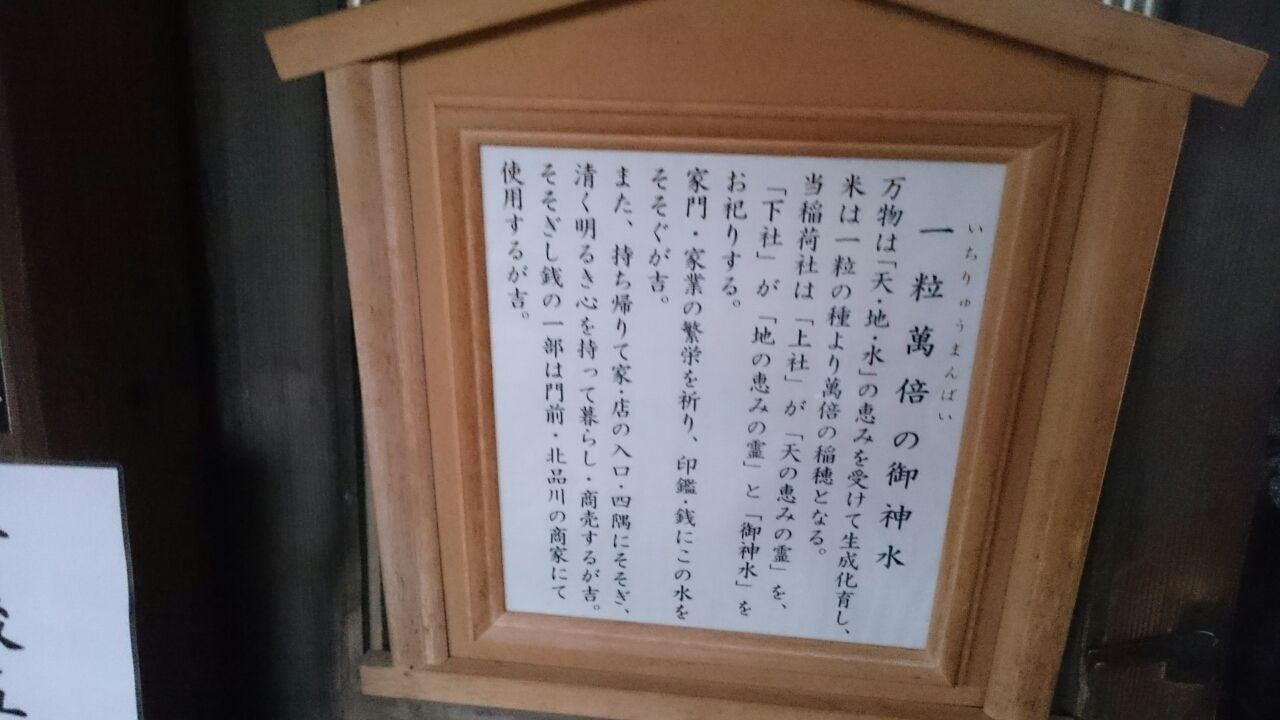 いちりゅうまんばい
一粒萬倍の御神水
万物は「天・地・水」の恵みを受けて生成化育し、
米は一粒の種より萬倍の稲穂となる。
当稲荷社は「上社」が「天の恵みの霊」を、
「下社」が「地の恵みの霊」と「御神水」を
お祀りする。
家門・家業の繁栄を祈り、印鑑・銭にこの水を
そそぐが吉。
また、持ち帰りて家・店の入口・四隅にそそぎ、
清く明るき心を持って暮らし・商売するが吉。
そそぎし銭の一部は門前・北品川の商家にて
使用するが吉。